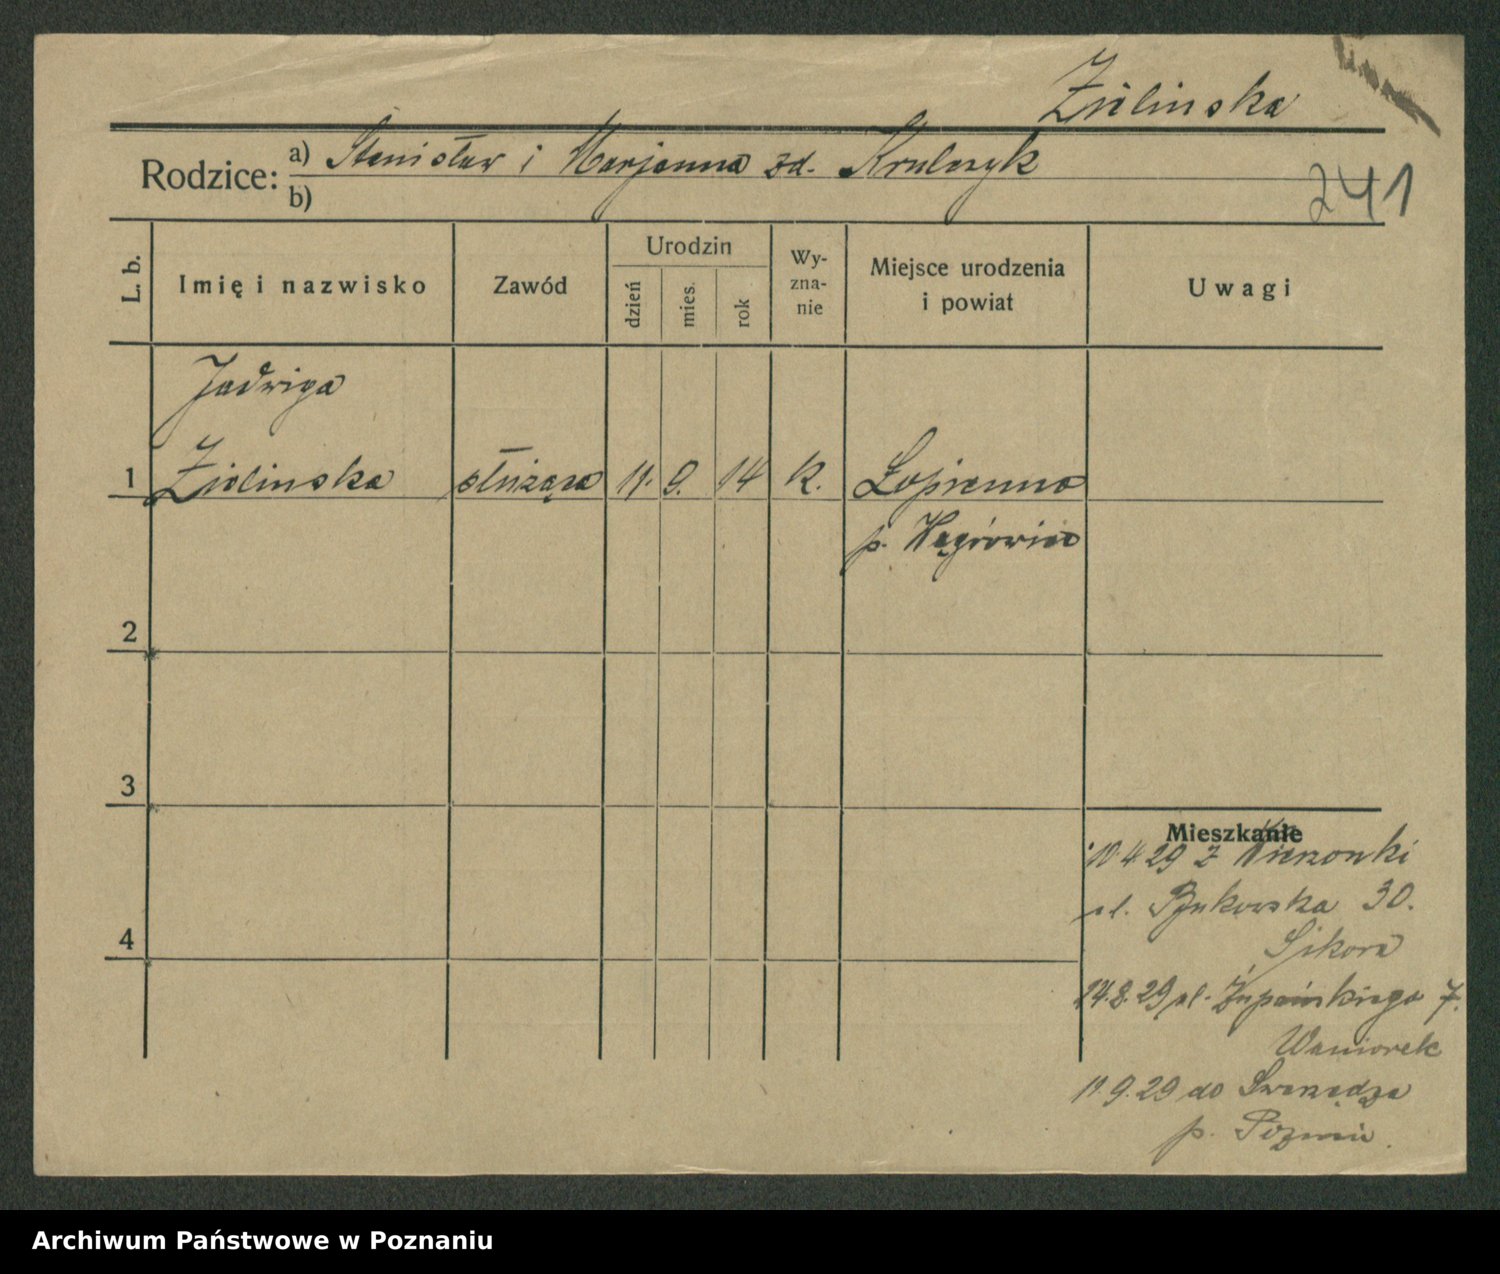 Zielinska
Rodzice: a) Stanisław i Marjanna zd. Krulczyk
b)
241
L. b. Imię i nazwisko Zawód Urodzin dzień mies. rok Wy-zna-nie Miejsce urodzenia i powiat Uwagi
Jadwiga
1 Zielinska służąca 11. 9. 14 k. Łopienno
p. Wągrowiec
2
3
Mieszkanie
10 4 29 z Wierzonki
ul. Bukowska 30.
Sikora
4
14.8.29 ul. Żupańskiego 7.
Waniorek
11.9.29 do Swarzędza
p. Poznań.
Archiwum Państwowe w Poznaniu